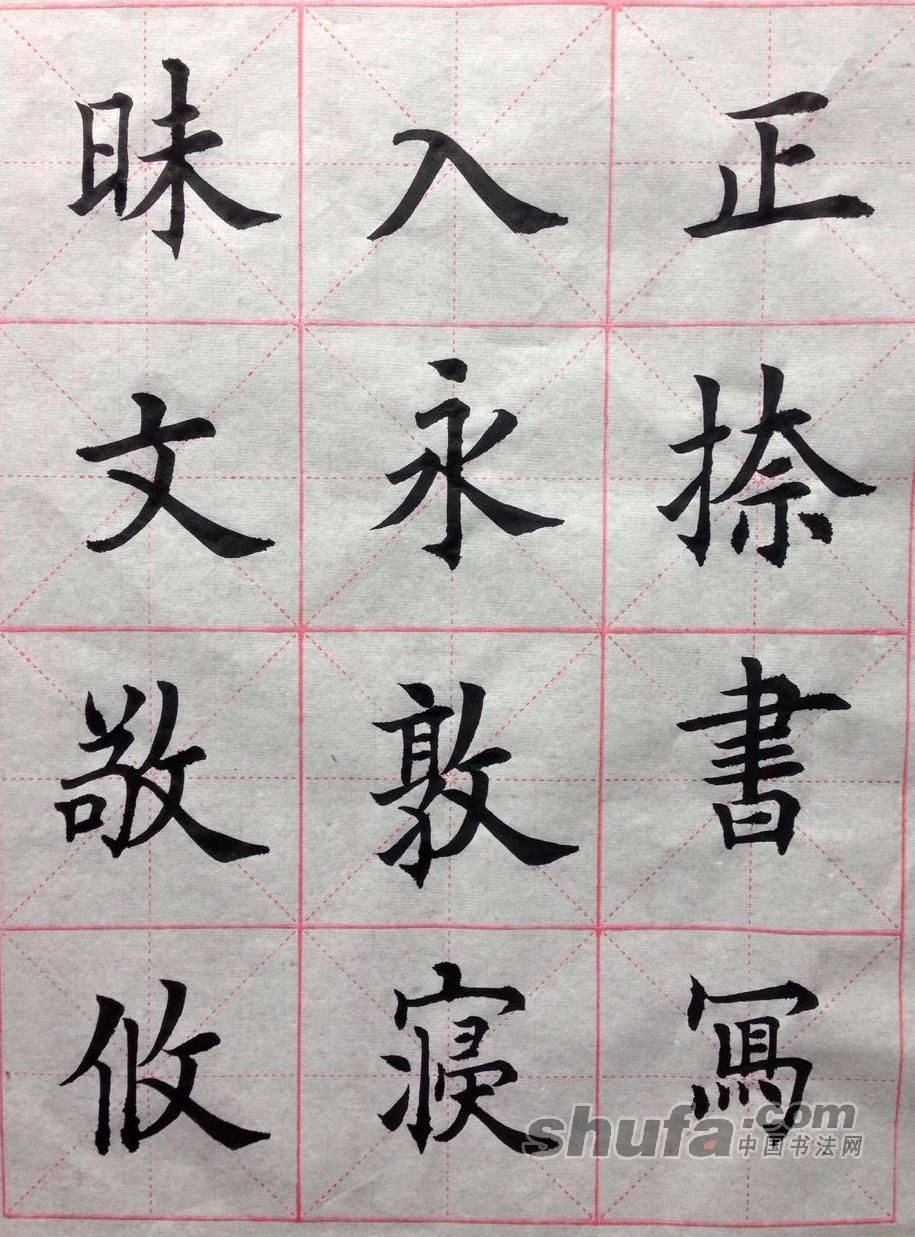 正捺書冩
入永敦寢
昧文敬攸
shufa.com
中国书法网